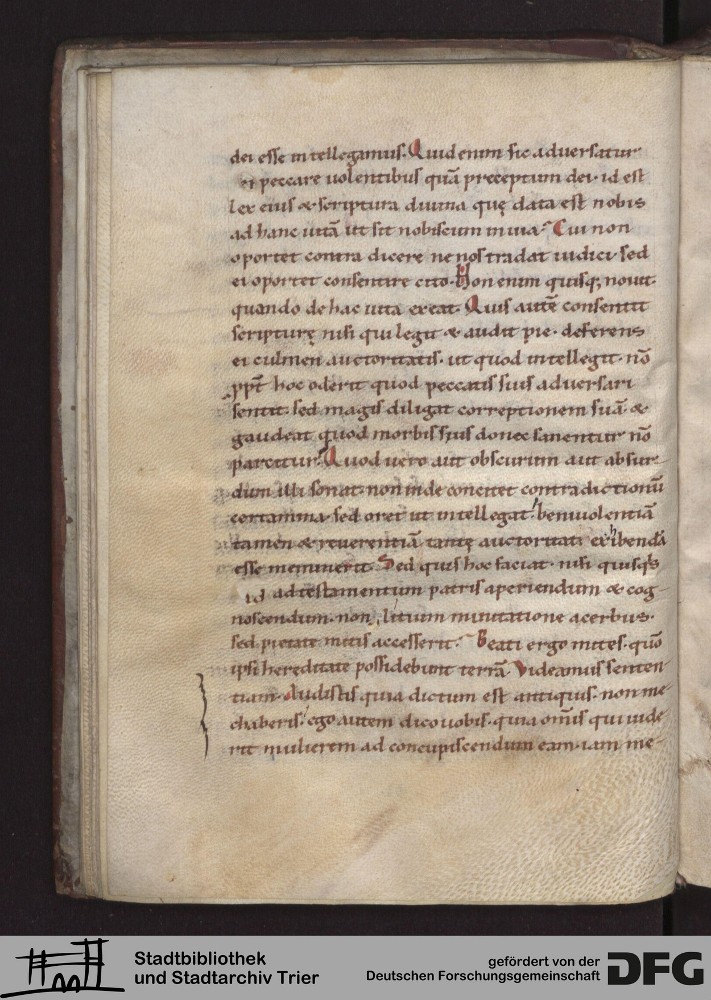 dei esse intellegamus. Quid enim sic aduersatur
ei peccare uolentibus quā preceptum dei. id est
lex eius & scriptura diuina quę data est nobis
ad hanc uitā ut sit nobiscum in uia? Cui non
oportet contra dicere ne nos tradat iudici. sed
ei oportet consentire cito. Non enim quisq; nouit.
quando de hac uita exeat. Quis autē consentit
scripturę nisi qui legit & audit pie. deferens
ei culmen auctoritatis. ut quod intellegit. nō
ppt̄ hoc oderit quod peccatis suis aduersari
sentit. sed magis diligat correptionem suā. &
gaudeat quod morbis suis donec sanentur nō
parcitur. Quod uero aut obscurum aut absur
dum illi sonat. non inde concitet contradictionū
certamina. sed oret ut intellegat. beniuolentiā
tamen & reuerentiā tantę auctoritati exhibendā
esse meminerit. Sed quis hoc faciat. nisi quisq's
id ad testamentum patris aperiendum & cog
noscendum. non litium minitatione acerbus.
sed pietate mitis accesserit. Beati ergo mites. quō
ipsi hereditate possidebunt terrā. Videamus senten
tiam. Audistis quia dictum est antiquis. non me
chaberis. ego autem dico uobis. quia om̄is qui uide
rit mulierem ad concupiscendum eam. iam me
Stadtbibliothek
und Stadtarchiv Trier
gefördert von der
Deutschen Forschungsgemeinschaft
DFG